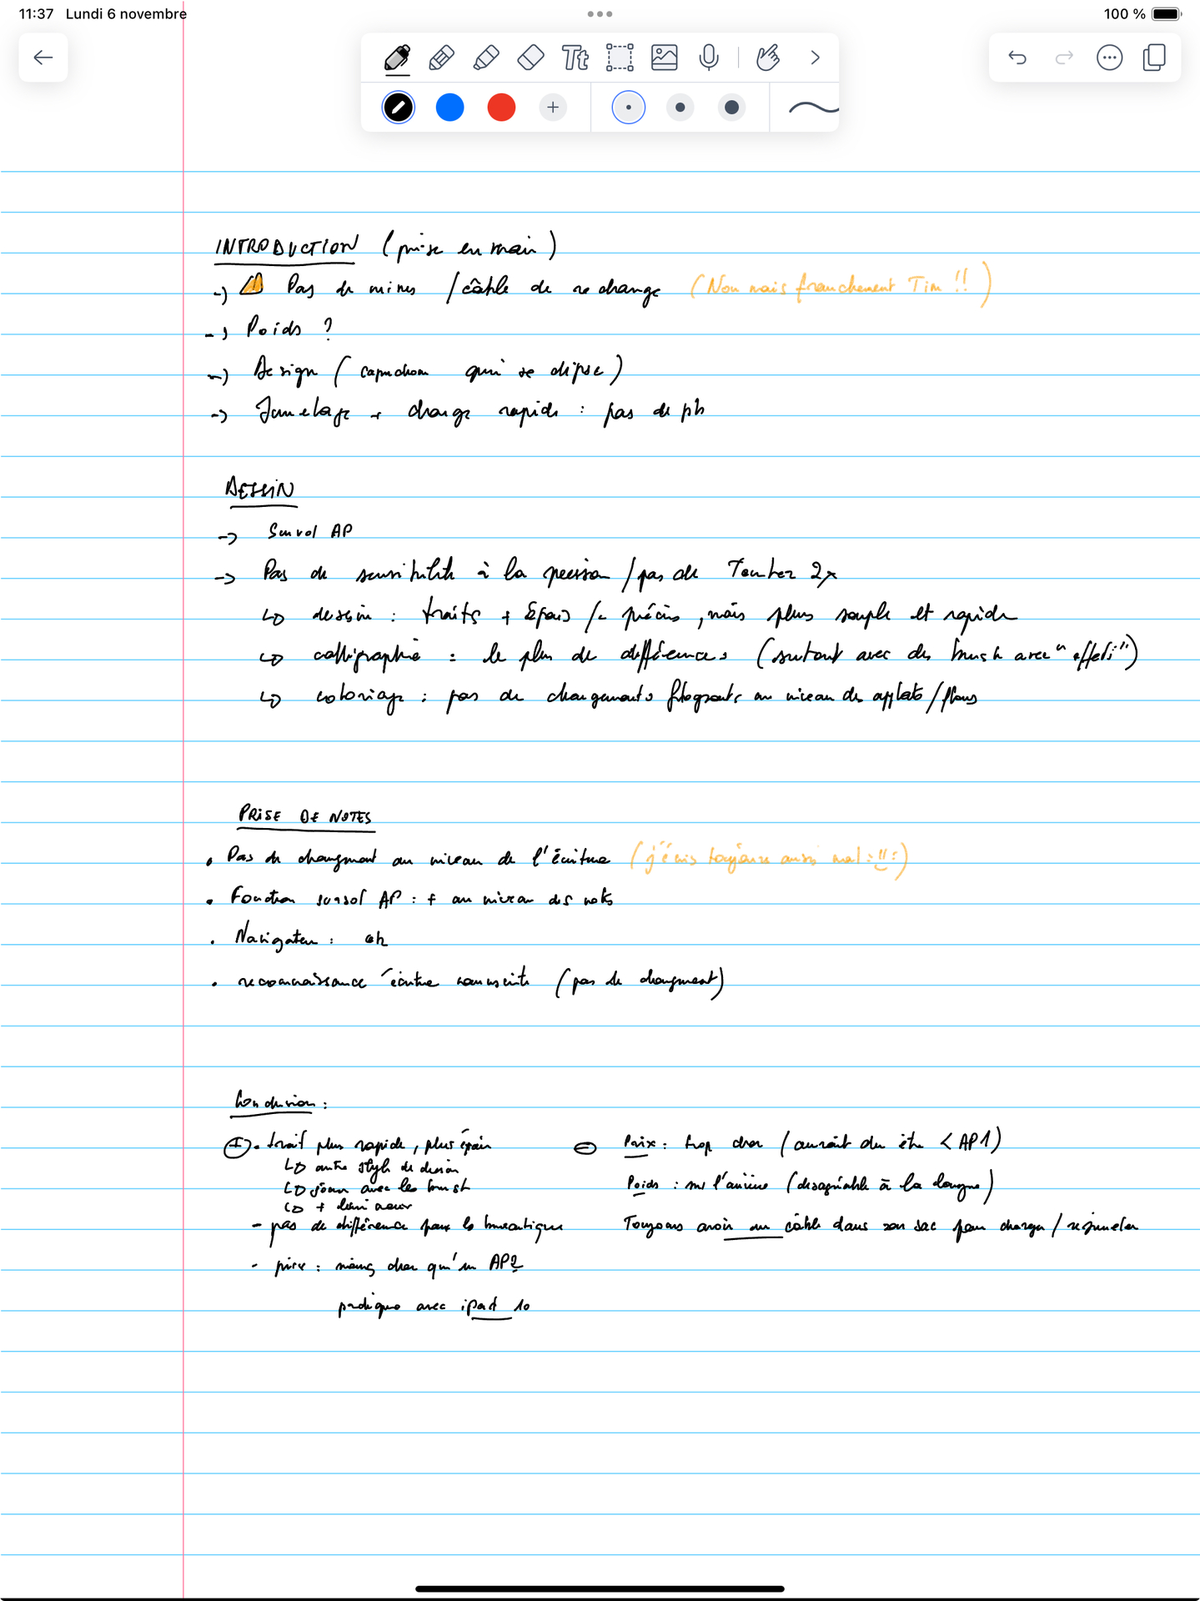 11:37 Lundi 6 novembre
100 %
Tt
INTRODUCTION (prise en main)
-> Pas de mines / câble de rechange (Non mais franchement Tim !!)
-> Poids ?
-> Design (capuchon qui se clipse)
-> Jumelage + charge rapide : pas de pb
DESSIN
-> Survol AP
-> Pas de sensibilité à la pression / pas de Toucher 2x
dessin : traits + épais /- précis, mais plus souple et rapide
calligraphie : le plus de différences (surtout avec des brush avec "effets")
coloriage : pas de changements flagrants au niveau des applats / flous
PRISE DE NOTES
• Pas de changement au niveau de l'écriture (j'écris toujours aussi mal :!!:)
• Fonction survol AP : + au niveau des notes
• Navigation : ok
• reconnaissance écriture manuscrite (pas de changement)
Conclusion :
+ - trait plus rapide, plus épais
autre style de dessin
jouer avec les brush
+
- pas de différence pour la bureautique
- prix : moins cher qu'un AP2
pratique avec iPad 10
- Prix : trop cher (aurait du être < AP1)
Poids : sur l'arrière (désagréable à la longue)
Toujours avoir un câble dans son sac pour charger / rejumeler